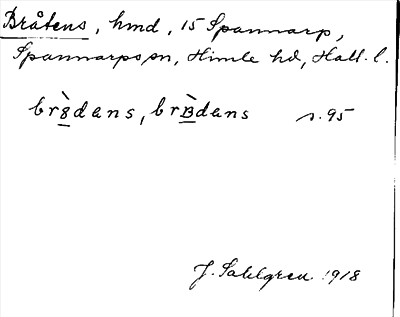 Bråtens, hmd, 15 Spannarp,
Spannarps sn, Himle hd, Hall. l.
br8̀dans, brB̀dans s. 95
J. Sahlgren 1918